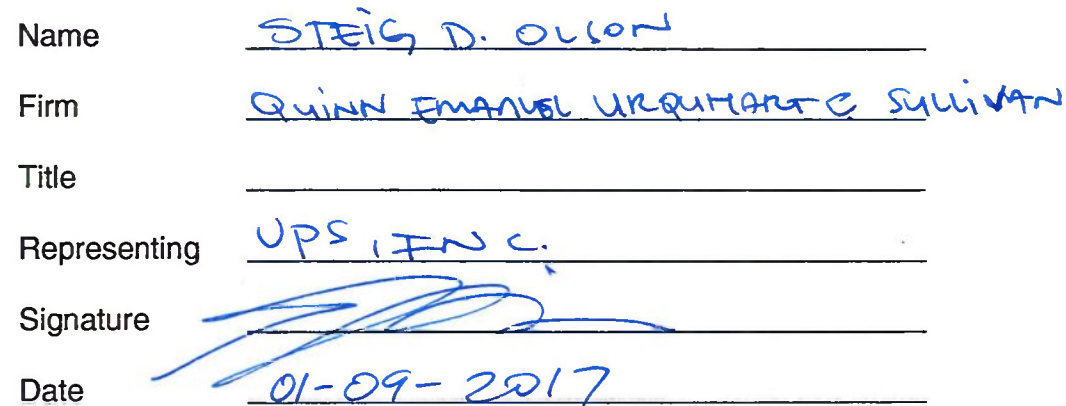 Name STEIG D. OLSON
Firm QUINN EMANUEL URQUHART & SULLIVAN
Title
Representing UPS, INC.
Signature
Date 01-09-2017